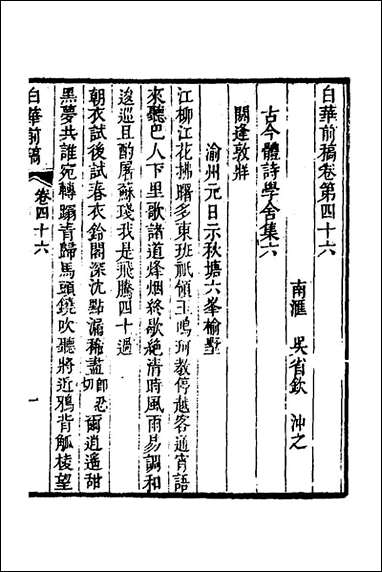 白華前稿卷第四十六
南滙 吳省欽 沖之
古今體詩學舍集六
閼逢敦牂
渝州元日示秋塘六峯榆墅
江柳江花拂曙多東班祇領玉鳴珂教停越客通宵語
來聽巴人下里歌諸道烽烟終歇絕清時風雨易調和
逡巡且酌屠蘇琖我是飛騰四十過
朝衣試後試春衣鈴閣深沈點漏稀盡卽忍切爾逍遙甜
黑夢共誰宛轉蹋青歸馬頭鐃吹聽將近鴉背觚棱望
白華前稿
卷四十六
一